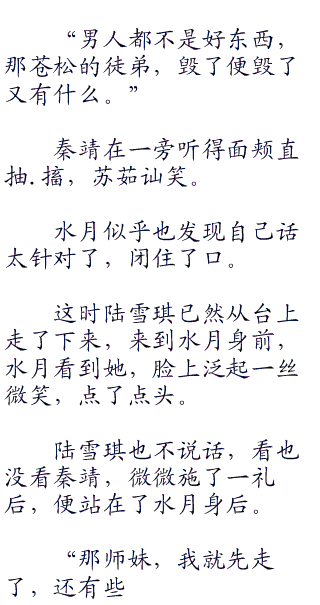 “男人都不是好东西，
那苍松的徒弟，毁了便毁了
又有什么。”
秦靖在一旁听得面颊直
抽.搐，苏茹讪笑。
水月似乎也发现自己话
太针对了，闭住了口。
这时陆雪琪已然从台上
走了下来，来到水月身前，
水月看到她，脸上泛起一丝
微笑，点了点头。
陆雪琪也不说话，看也
没看秦靖，微微施了一礼
后，便站在了水月身后。
“那师妹，我就先走
了，还有些